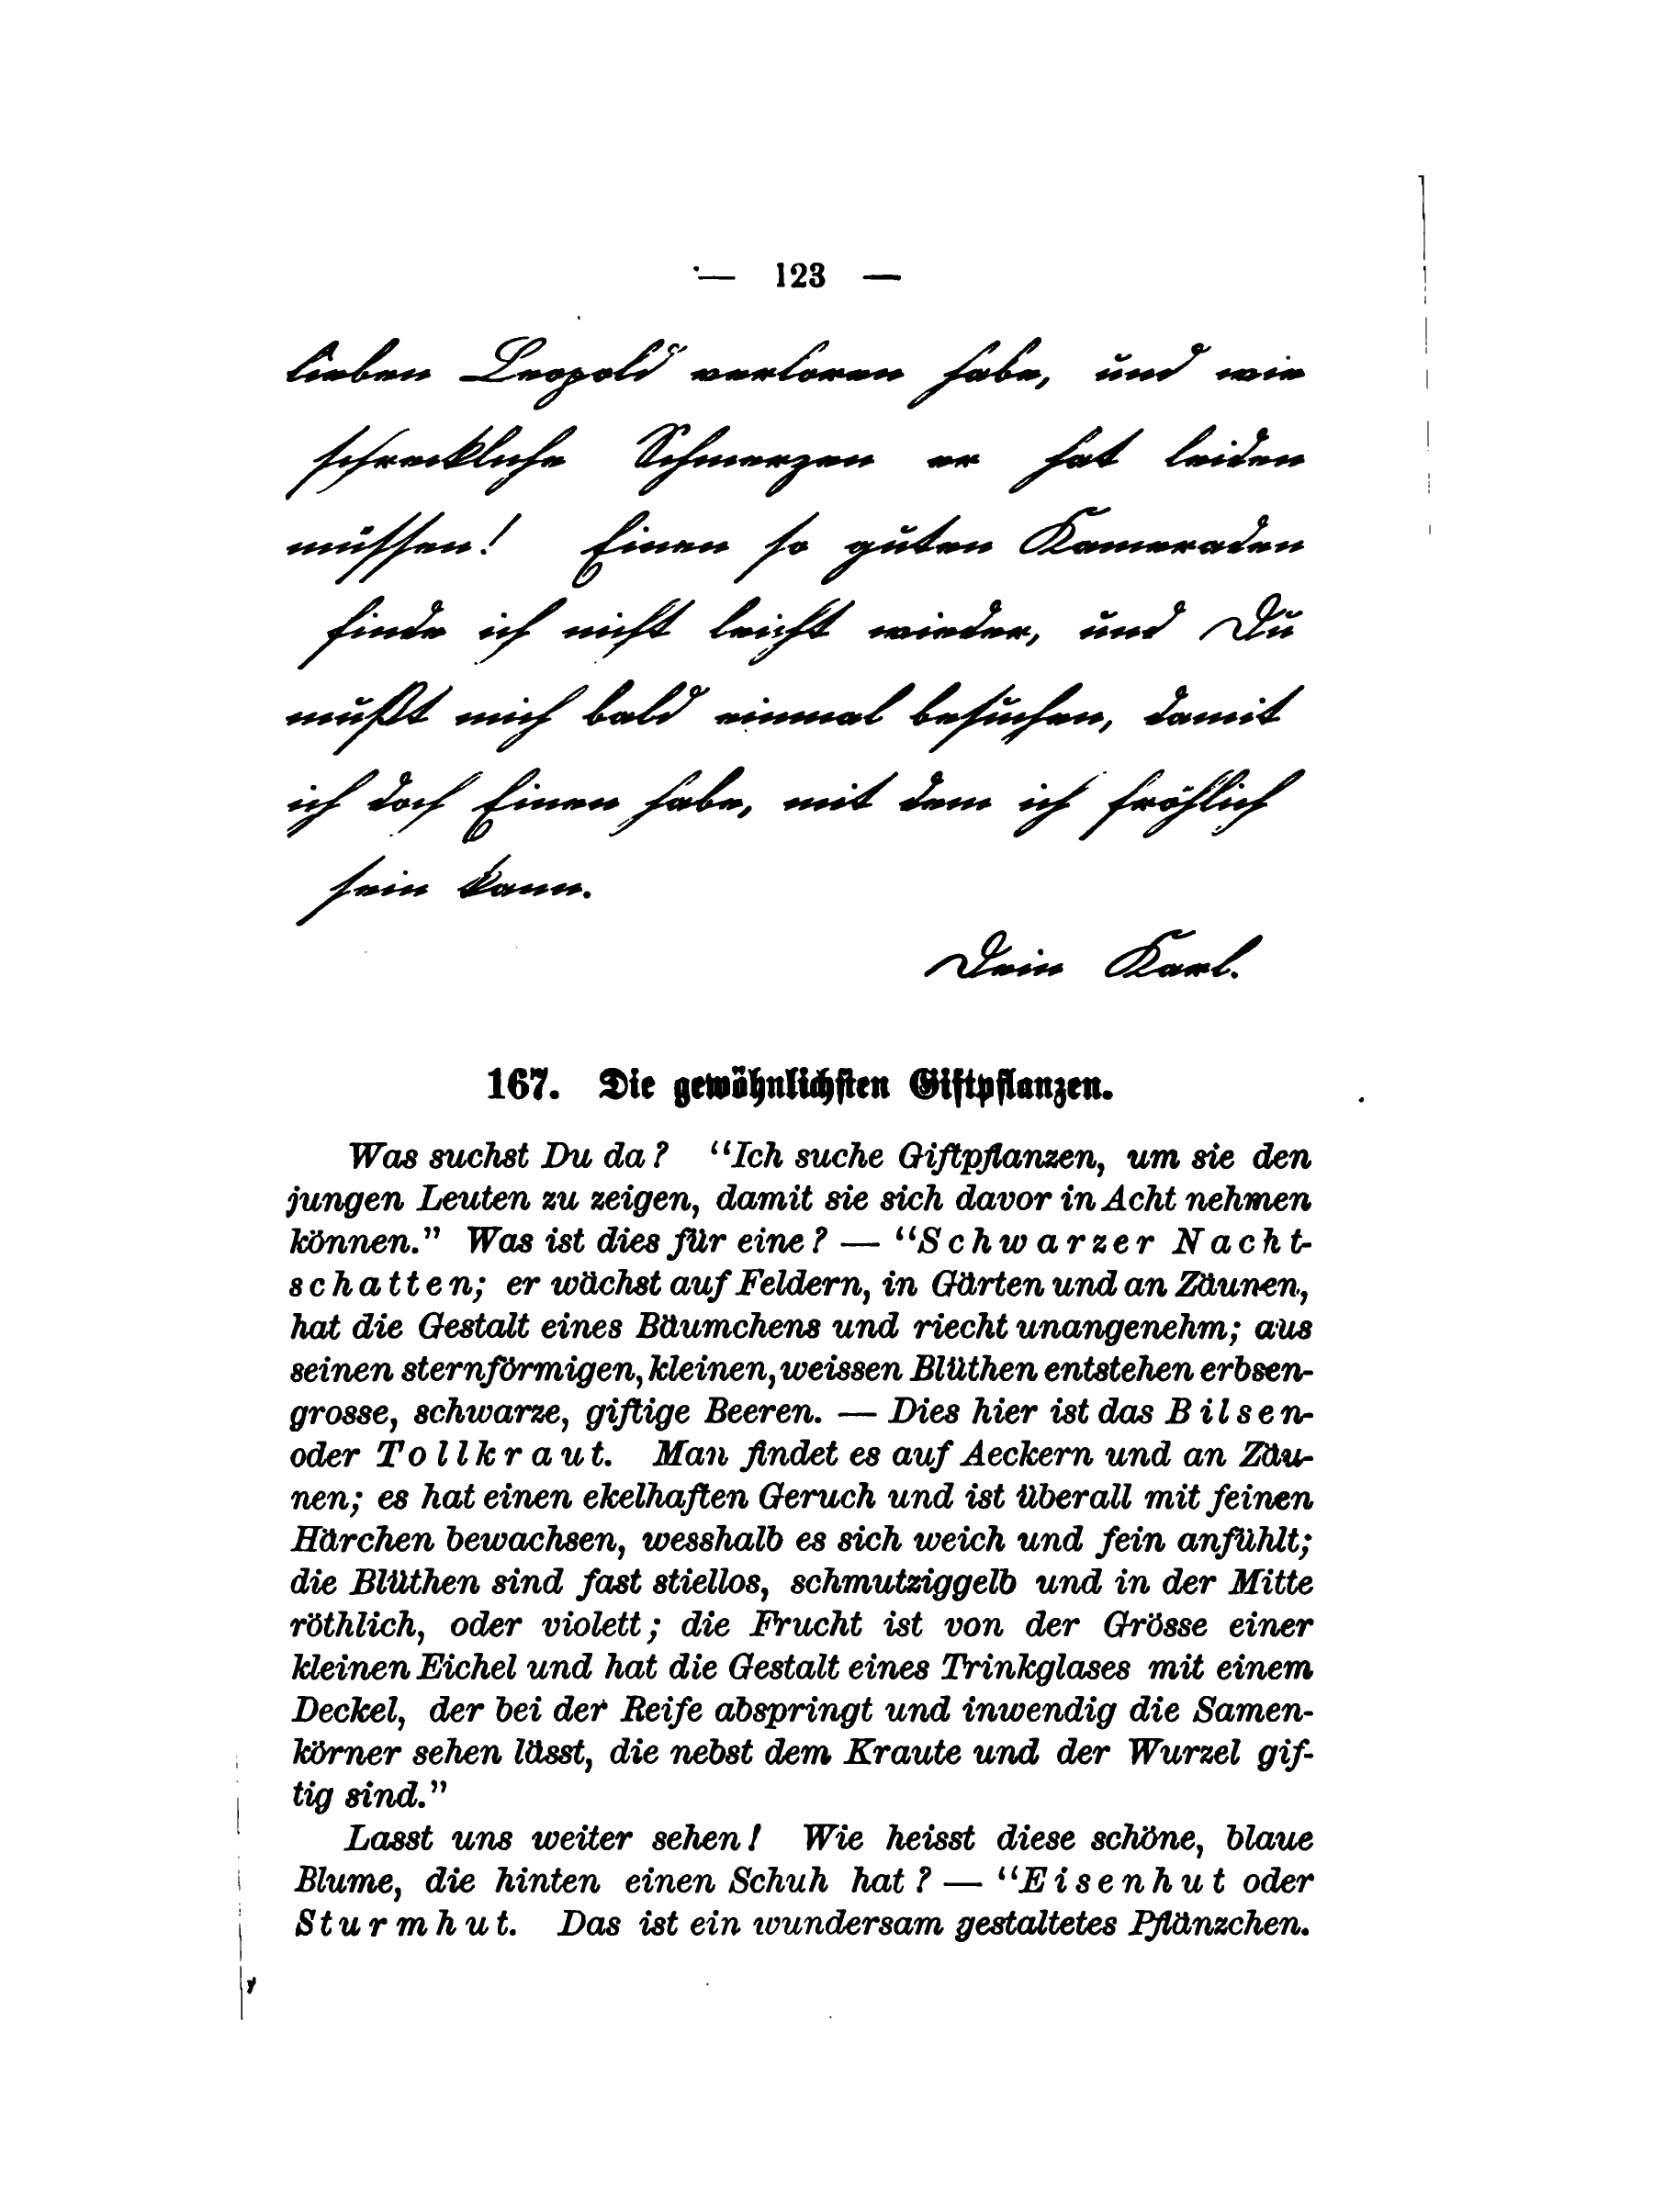 — 123 —
lieben Leopold verloren habe, und wie
schreckliche Schmerzen er hat leiden
müssen! Einen so guten Kameraden
finde ich nicht leicht wieder, und Du
mußt mich bald einmal besuchen, damit
ich doch Einen habe, mit dem ich fröhlich
sein kann.
Dein Karl.
167. Die gewöhnlichsten Giftpflanzen.
Was suchst Du da? “Ich suche Giftpflanzen, um sie den
jungen Leuten zu zeigen, damit sie sich davor in Acht nehmen
können.” Was ist dies für eine? — “Schwarzer Nacht-
schatten; er wächst auf Feldern, in Gärten und an Zäunen,
hat die Gestalt eines Bäumchens und riecht unangenehm; aus
seinen sternförmigen, kleinen, weissen Blüthen entstehen erbsen-
grosse, schwarze, giftige Beeren. — Dies hier ist das Bilsen-
oder Tollkraut. Man findet es auf Aeckern und an Zäu-
nen; es hat einen ekelhaften Geruch und ist überall mit feinen
Härchen bewachsen, wesshalb es sich weich und fein anfühlt;
die Blüthen sind fast stiellos, schmutziggelb und in der Mitte
röthlich, oder violett; die Frucht ist von der Grösse einer
kleinen Eichel und hat die Gestalt eines Trinkglases mit einem
Deckel, der bei der Reife abspringt und inwendig die Samen-
körner sehen lässt, die nebst dem Kraute und der Wurzel gif-
tig sind.”
Lasst uns weiter sehen! Wie heisst diese schöne, blaue
Blume, die hinten einen Schuh hat? — “Eisenhut oder
Sturmhut. Das ist ein wundersam gestaltetes Pflänzchen.